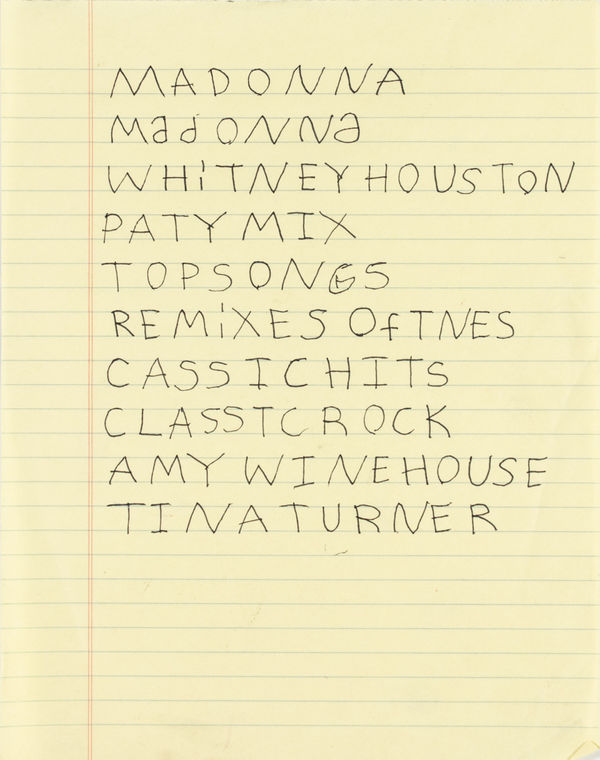 MADONNA
MadONNa
WHiTNEY HOUSTON
PATY MIX
TOPSONGS
REMiXES OfTNES
CASSIC HITS
CLASSTC ROCK
AMY WINEHOUSE
TINA TURNER